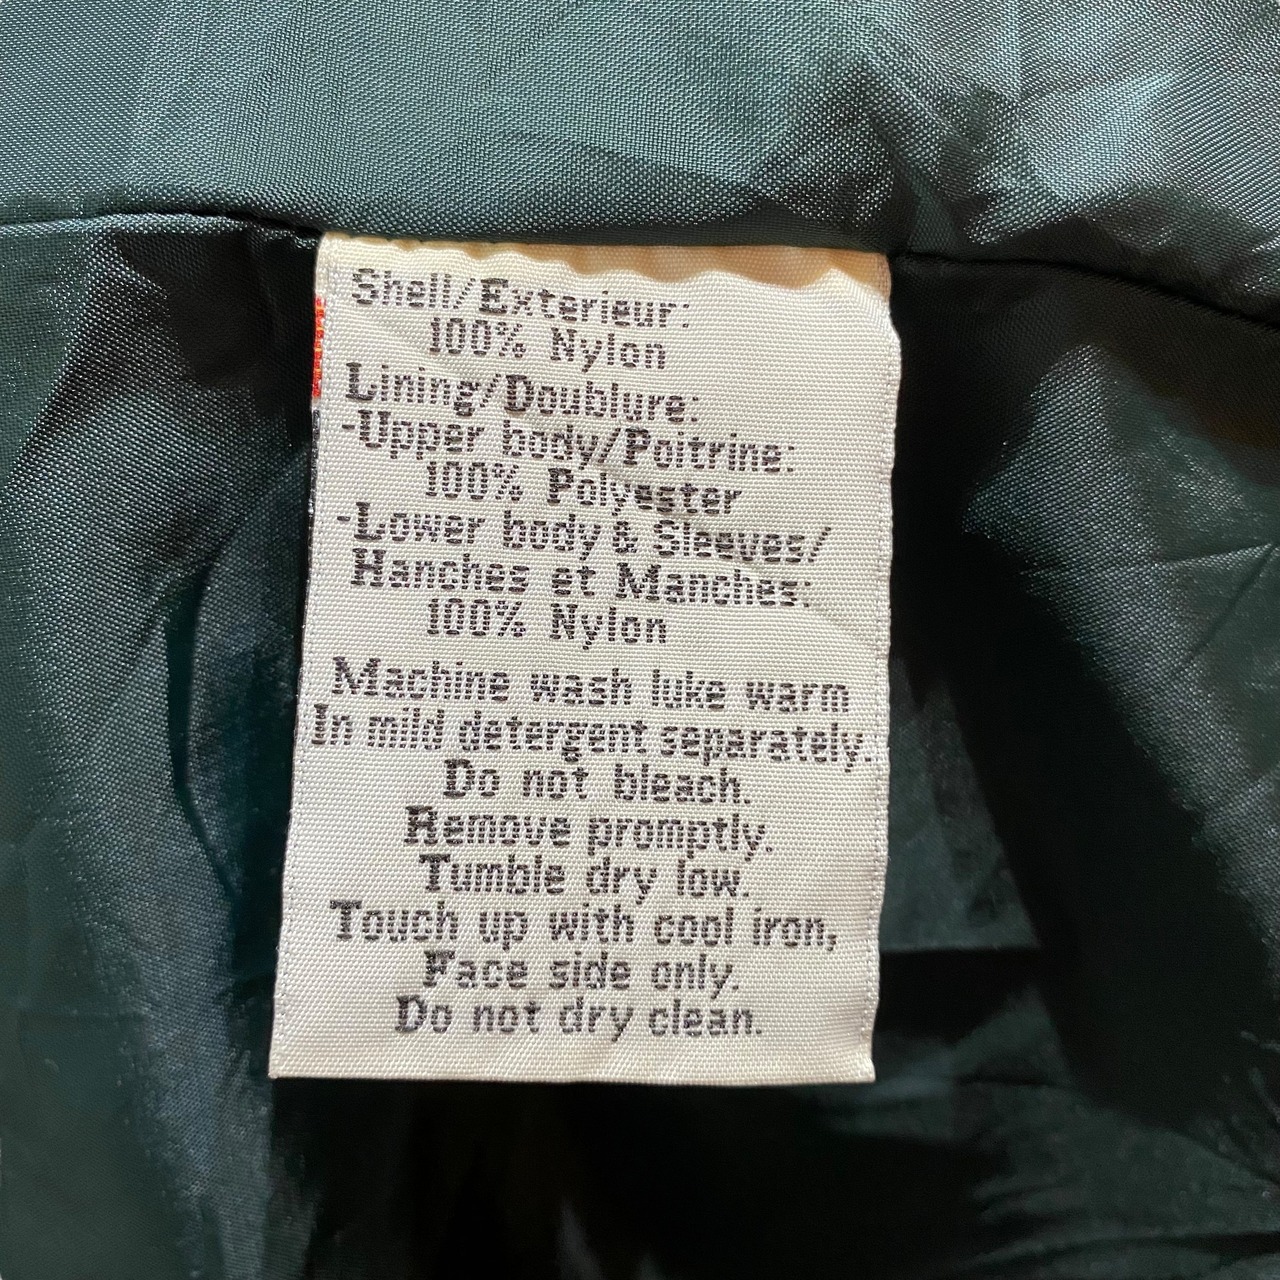 Shell/Exterieur:
100% Nylon
Lining/Doublure:
-Upper body/Poitrine:
100% Polyester
-Lower body & Sleeves/
Hanches et Manches:
100% Nylon
Machine wash luke warm
In mild detergent separately.
Do not bleach.
Remove promptly.
Tumble dry low.
Touch up with cool iron,
Face side only.
Do not dry clean.